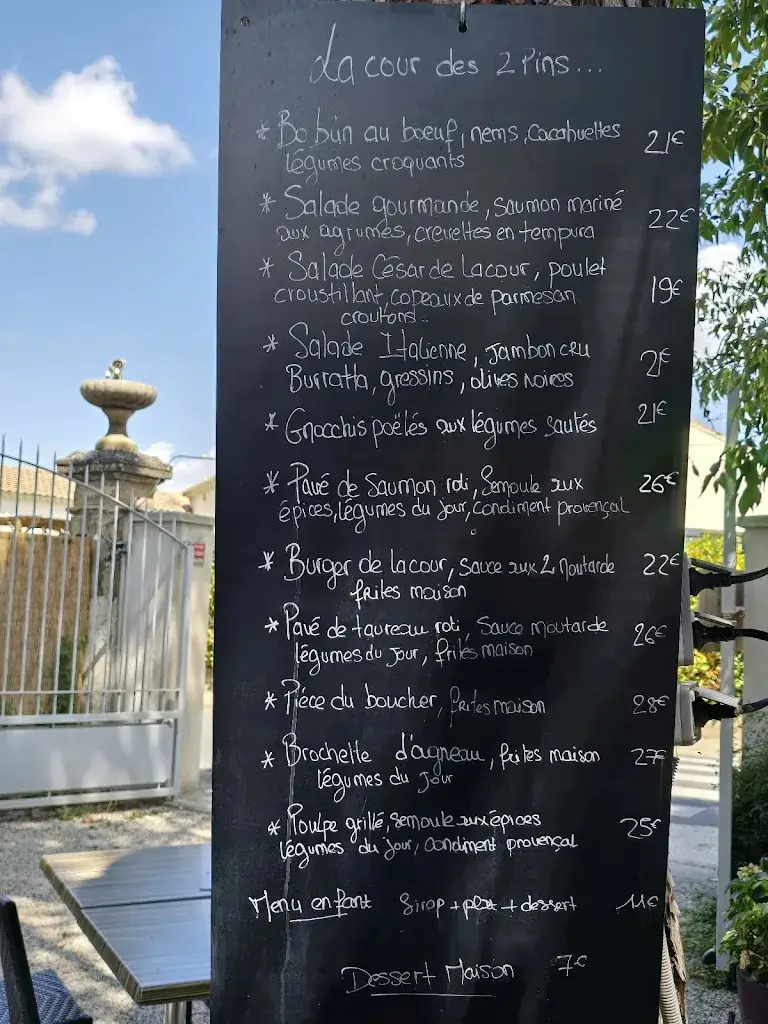 La cour des 2 Pins...
* Bo bun au boeuf, nems, cacahuettes 21€
légumes croquants
* Salade gourmande, saumon mariné 22€
aux agrumes, crevettes en tempura
* Salade César de Lacour, poulet
croustillant, copeaux de parmesan 19€
croutons..
* Salade Italienne, Jambon cru 21€
Burratta, gressins, olives noires
* Gnocchis poëlés aux légumes sautés 21€
* Pavé de Saumon roti, Semoule aux 26€
épices, légumes du jour, condiment provençal
* Burger de lacour, sauce aux 2 Moutarde 22€
frites maison
* Pavé de taureau roti, Sauce Moutarde 26€
légumes du Jour, frites maison
* Piéce du boucher, frites maison 28€
* Brochette d'agneau, frites maison 27€
légumes du Jour
* Poulpe grillé, semoule aux épices 25€
légumes du Jour, condiment provençal
Menu enfant Sirop + plat + dessert 11€
Dessert Maison 7€